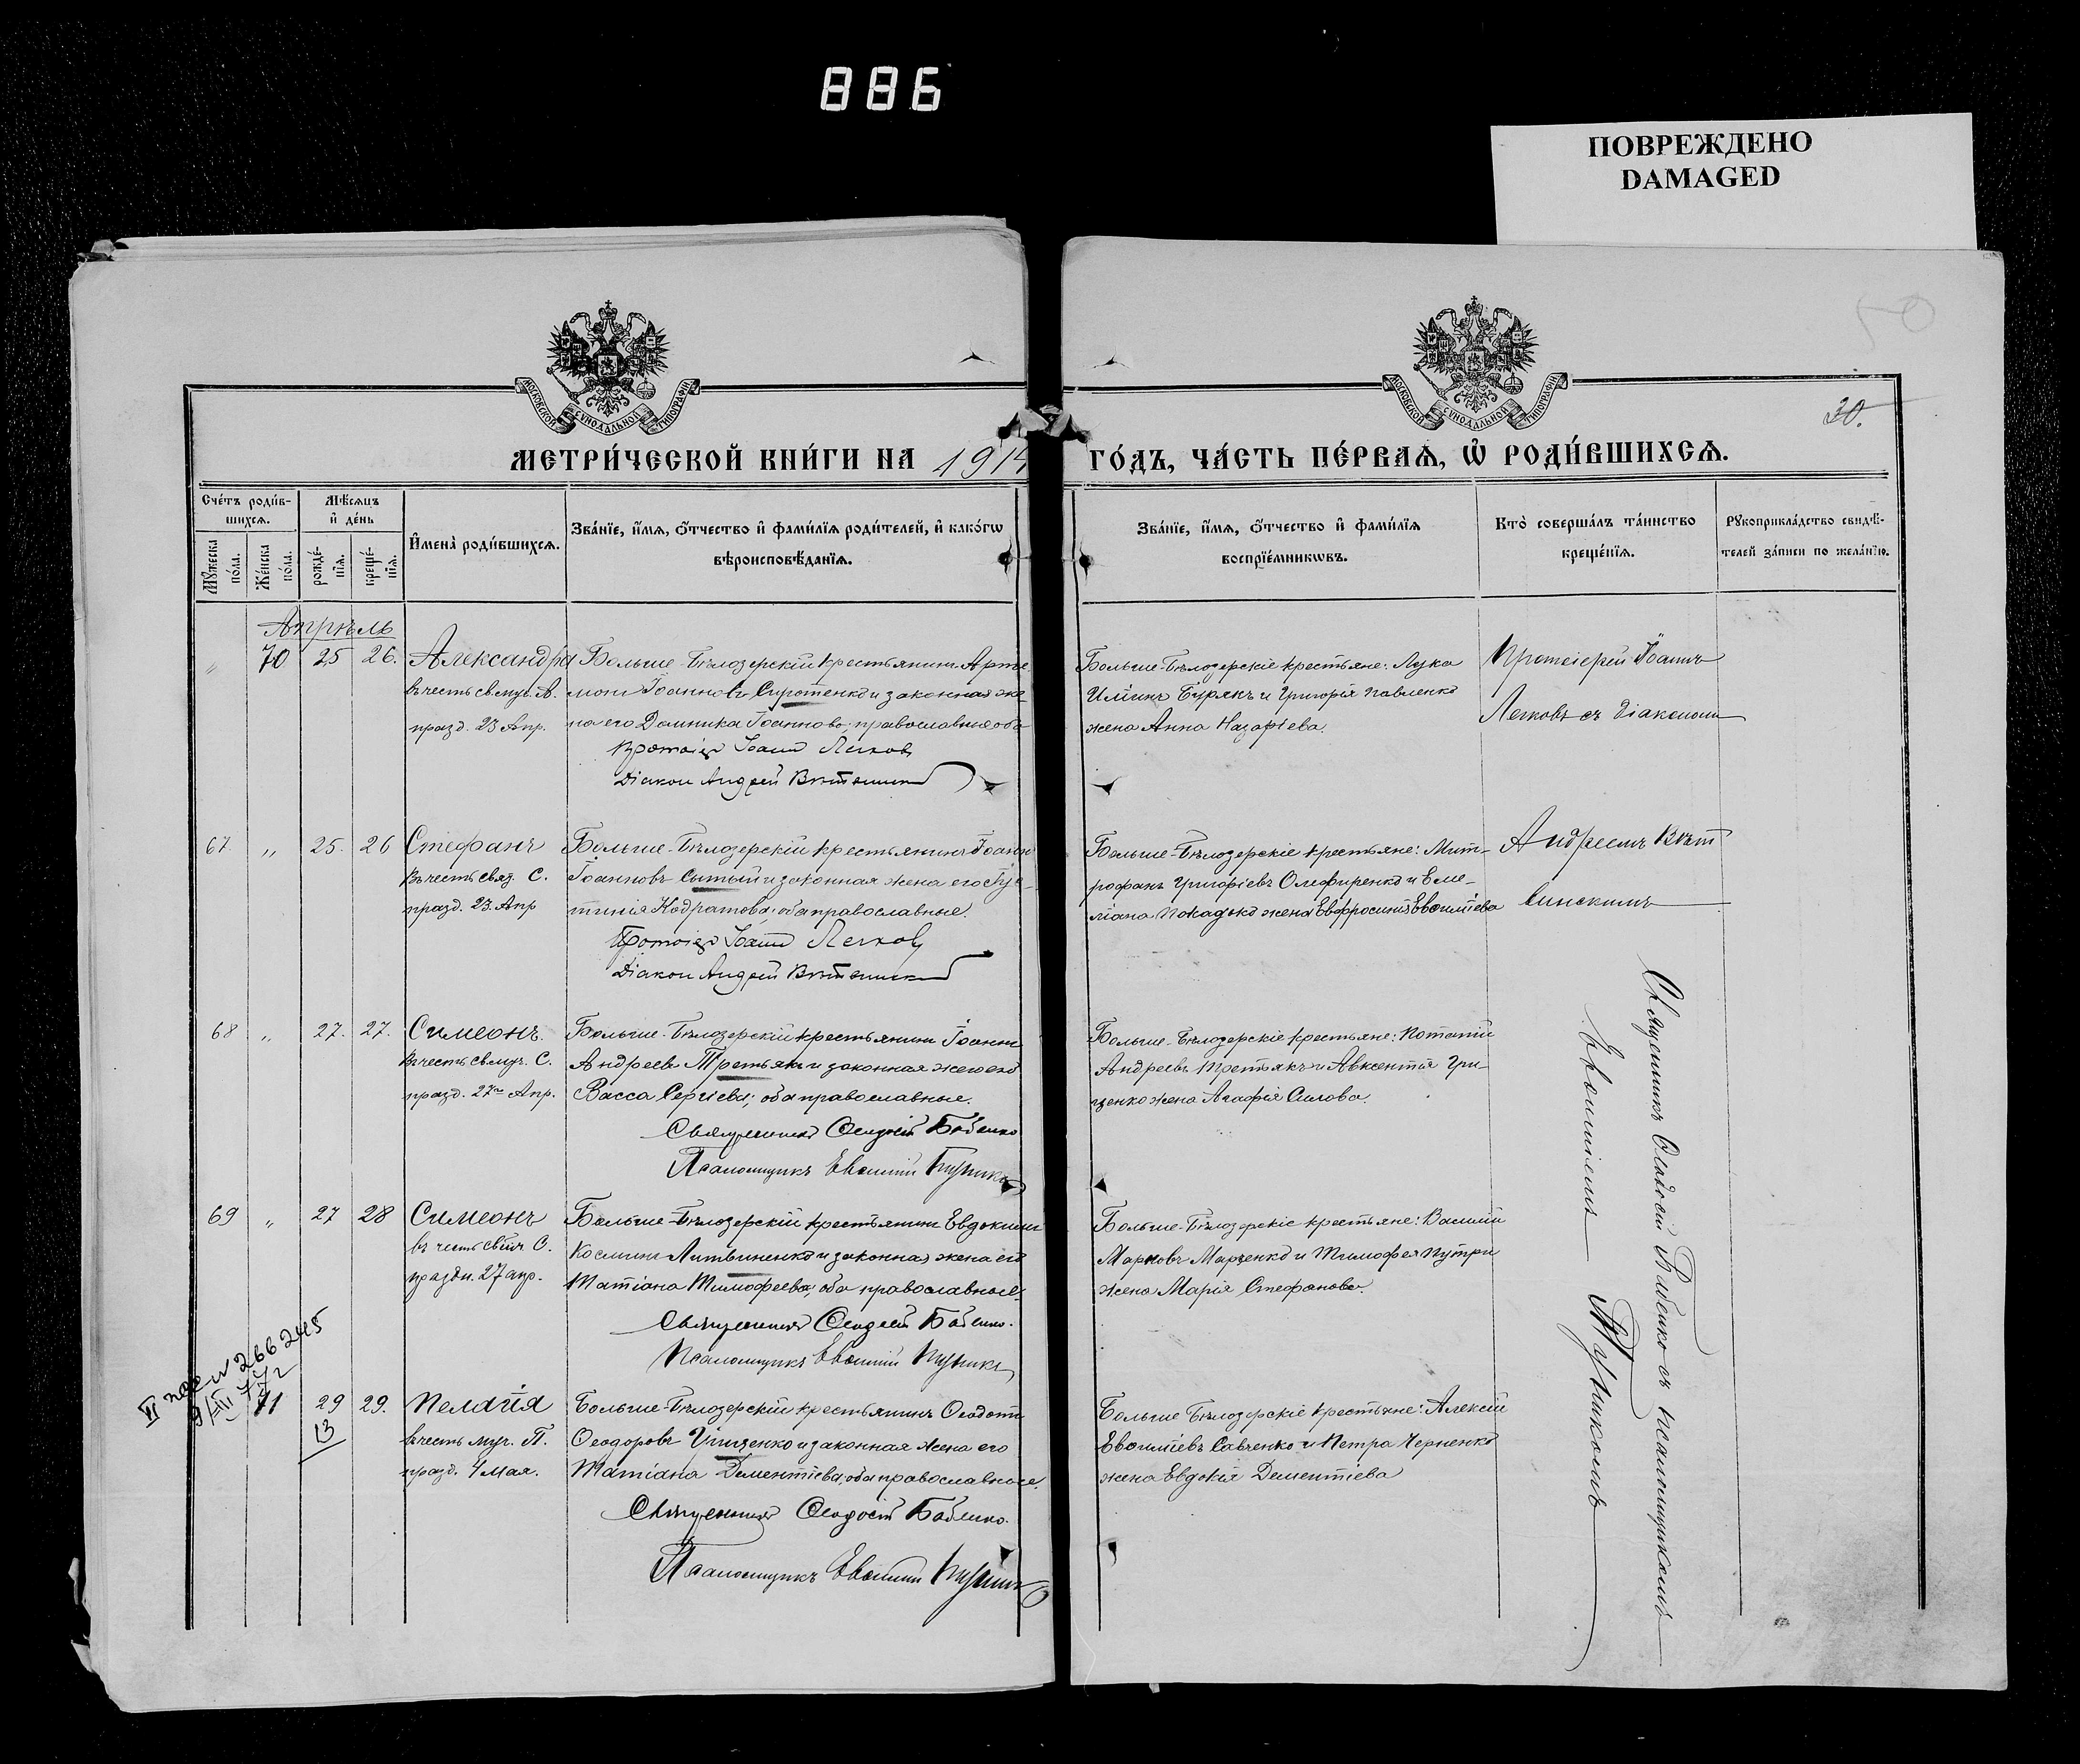 886
ПОВРЕЖДЕНО
DAMAGED
50
30.
МОСКОВСКОЙ СѴНОДАЛЬНОЙ ТИПОГРАФІИ
МОСКОВСКОЙ СѴНОДАЛЬНОЙ ТИПОГРАФІИ
МЕТРИ́ЧЕСКОЙ КНИ́ГИ НА 1914
ГО́ДЪ, ЧА́СТЬ ПЕ́РВАѦ, Ѡ҆ РОДИ́ВШИХСѦ.
Сче́тъ роди́в-
шихсѧ.
Мꙋ́жеска по́ла.
Же́нска по́ла.
Мѣ́сѧцъ
и҆ де́нь
рожде́-
нїѧ.
креще́-
нїѧ.
И҆мена̀ роди́вшихсѧ.
Зва́нїе, и҆́мѧ, ѻ҆́тчество и҆ фами́лїѧ роди́телей, и҆ како́гѡ
вѣроисповѣ́данїѧ.
Зва́нїе, и҆́мѧ, ѻ҆́тчество и҆ фами́лїѧ
воспрїе́мникѡвъ.
Кто̀ соверша́лъ та́инство
креще́нїѧ.
Рꙋкоприкла́дство свидѣ́-
телей за́писи по жела́нїю.
Апрѣль
„ 70 25 26. Александра
въ честь св. муч. А.
празд. 23 Апр.
Больше-Бѣлозерскій крестьянинъ Арте
монъ Іоанновъ Сиротенко и законная же
на его Домника Іоаннова; православные оба
Протоіер Іоанн Легков
Діакон Андрей
Больше-Бѣлозерскіе крестьяне: Лука
Илiинъ Бурякъ и Григорія Павленко
жена Анна Назаріева.
Протоіерей Іоаннъ
Легковъ съ діакономъ
67 „ 25. 26 Стефанъ
въ честь С.
празд. 23. Апр
Больше-Бѣлозерскій крестьянинъ Іоаннъ
Іоанновъ Сытый и законная жена его Іус-
тинія Кодратова; оба православные.
Протоіер Іоанн Легков
Діакон Андрей
Больше-Бѣлозерскіе крестьяне: Мит-
рофанъ Григоріевъ Олефиренко и Еме-
ліана жена Евфросинія Евѳиміева
Андреемъ Вѣт
синскимъ
68 „ 27. 27. Симеонъ.
въ честь св. муч. С.
празд. 27го Апр.
Больше-Бѣлозерскій крестьянинъ Іоаннъ
Андреевъ Третьякъ и законная жена его
Васса Сергіева; оба православные.
Священникъ Ѳеодосій Бабенко
Псаломщикъ Евѳимій
Больше-Бѣлозерскіе крестьяне: Потапій
Андреевъ Третьякъ и Авксентія Гри-
ценко жена Агафія Силова.
69 „ 27 28 Симеонъ
въ честь С.
праздн. 27 апр.
Больше-Бѣлозерскій крестьянинъ Евдокимъ
Косминъ Литвиненко и законная жена его
Татіана Тимофеева; оба православные.
Священникъ Ѳеодосій Бабенко.
Псаломщикъ Евѳимій
Больше-Бѣлозерскіе крестьяне: Василій
Марковъ Марченко и Тимофея
жена Марія Стефанова.
266245
71 29 29. Пелагія
13
въ честь муч. П.
празд. 4 мая.
Больше-Бѣлозерскій крестьянинъ Ѳеодотъ
Ѳеодоровъ Грищенко и законная жена его
Татіана Дементіева; оба православные.
Священникъ Ѳеодосій Бабенко.
Псаломщикъ Евѳимій
Больше Бѣлозерскіе крестьяне: Алексій
Евѳиміевъ Савченко и Петра Черненко
жена Евдокія Дементіева
Священникъ Ѳеодосій Бабенко съ псаломщикомъ
Евѳиміемъ